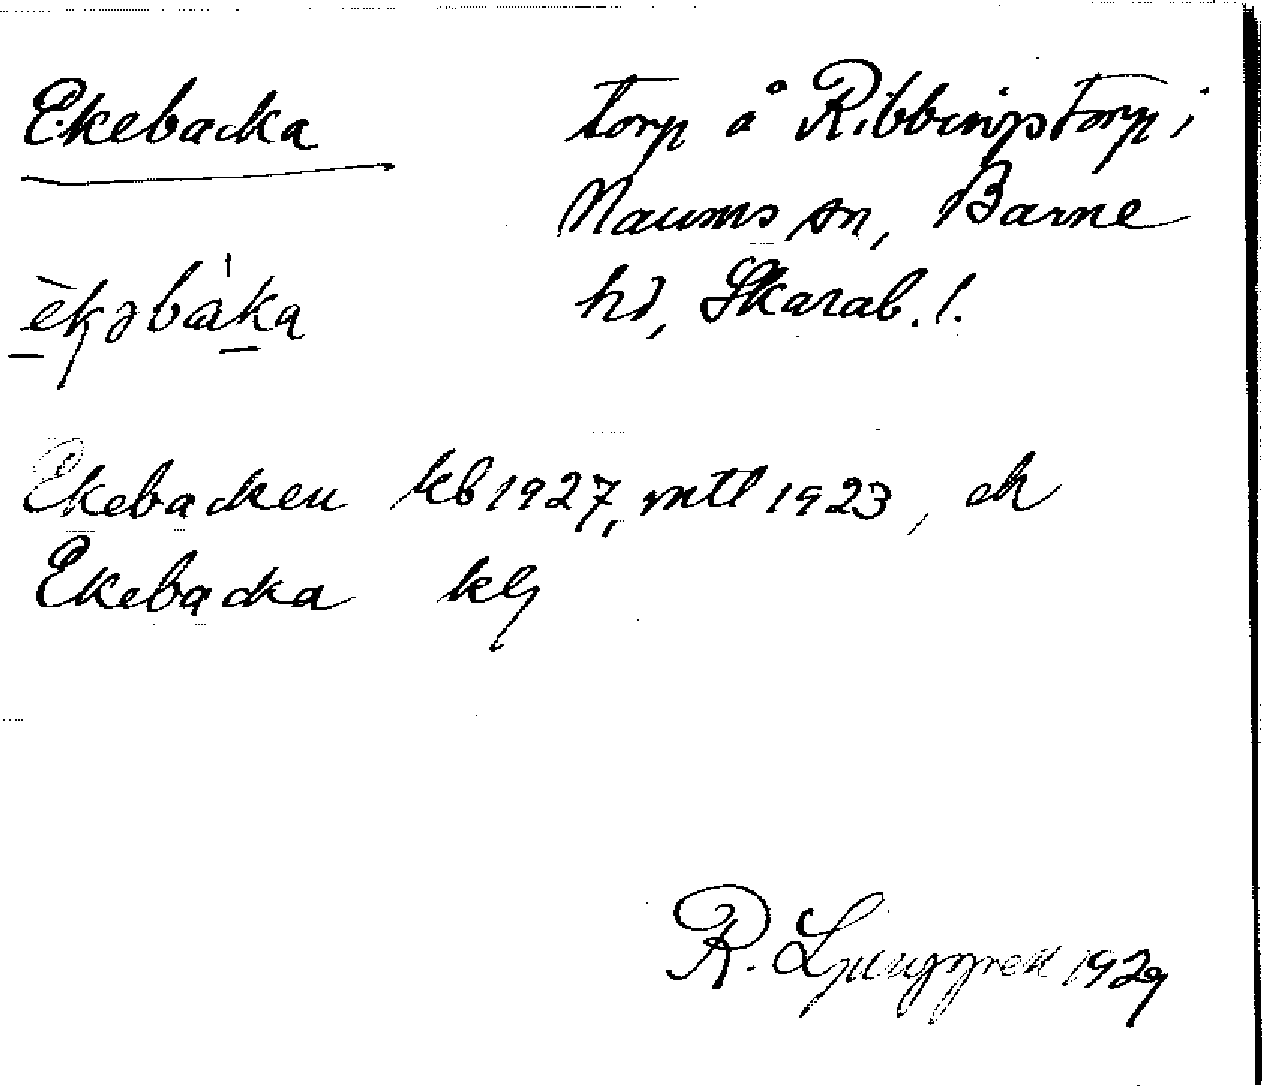 Ekebacka
torp å Ribbingstorp i
Naums sn, Barne
hd, Skarab. l.
èkəbàka
Ekebacken kb 1927, mtl 1923, ek
Ekebacka klg
R. Ljunggren 1929